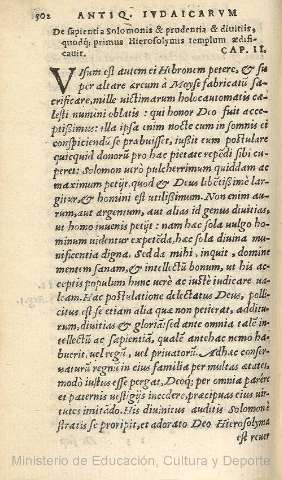 502 ANTIQ. IVDAICARVM
De sapientia Solomonis & prudentia & diuitiis,
quodq; primus Hierosolymis templum ædifi-
cauit. CAP. II.
VIsum est autem ei Hebronem petere, & su
per altare æreum à Moyse fabricatũ sa-
crificare, mille victimarum holocautomatis cæ
lesti numini oblatis: qui honor Deo fuit acce-
ptissimus: illa ipsa enim nocte cum in somnis ei
conspiciendũ se præbuisset, iussit eum postulare
quicquid donorũ pro hac pietate rependi sibi cu-
peret: Solomon uerò pulcherrimum quiddam ac
maximum petijt, quod & Deus libẽtissimè lar-
gitur, & homini est utilissimum. Non enim au-
rum, aut argentum, aut alias id genus diuitias,
ut homo iuuenis petijt: nam hæc sola uulgo ho-
minum uidentur expetẽda, hæc sola diuina mu-
nificentia digna. Sed da mihi, inquit, domine
mentem sanam, & intellectũ bonum, ut his ac-
ceptis populum hunc uerè ac iustè iudicare ua-
leam. Hac postulatione delectatus Deus, polli-
citus est se etiam alia quæ non petierat, additu-
rum, diuitias & gloriã: sed ante omnia talẽ in-
tellectũ ac sapientiã, qualẽ antehac nemo ha-
buerit, uel regũ, uel priuatorũ. Adhæc conser-
uaturũ regnũ in eius familia per multas ætates,
modò iustus esse pergat, Deoq; per omnia parere
et paternis uestigijs incedere, præcipuas eius uir-
tutes imitãdo. His diuinitus auditis Solomon è
stratis se proripit, et adorato Deo Hierosolyma
est reuer
Ministerio de Educación, Cultura y Deporte